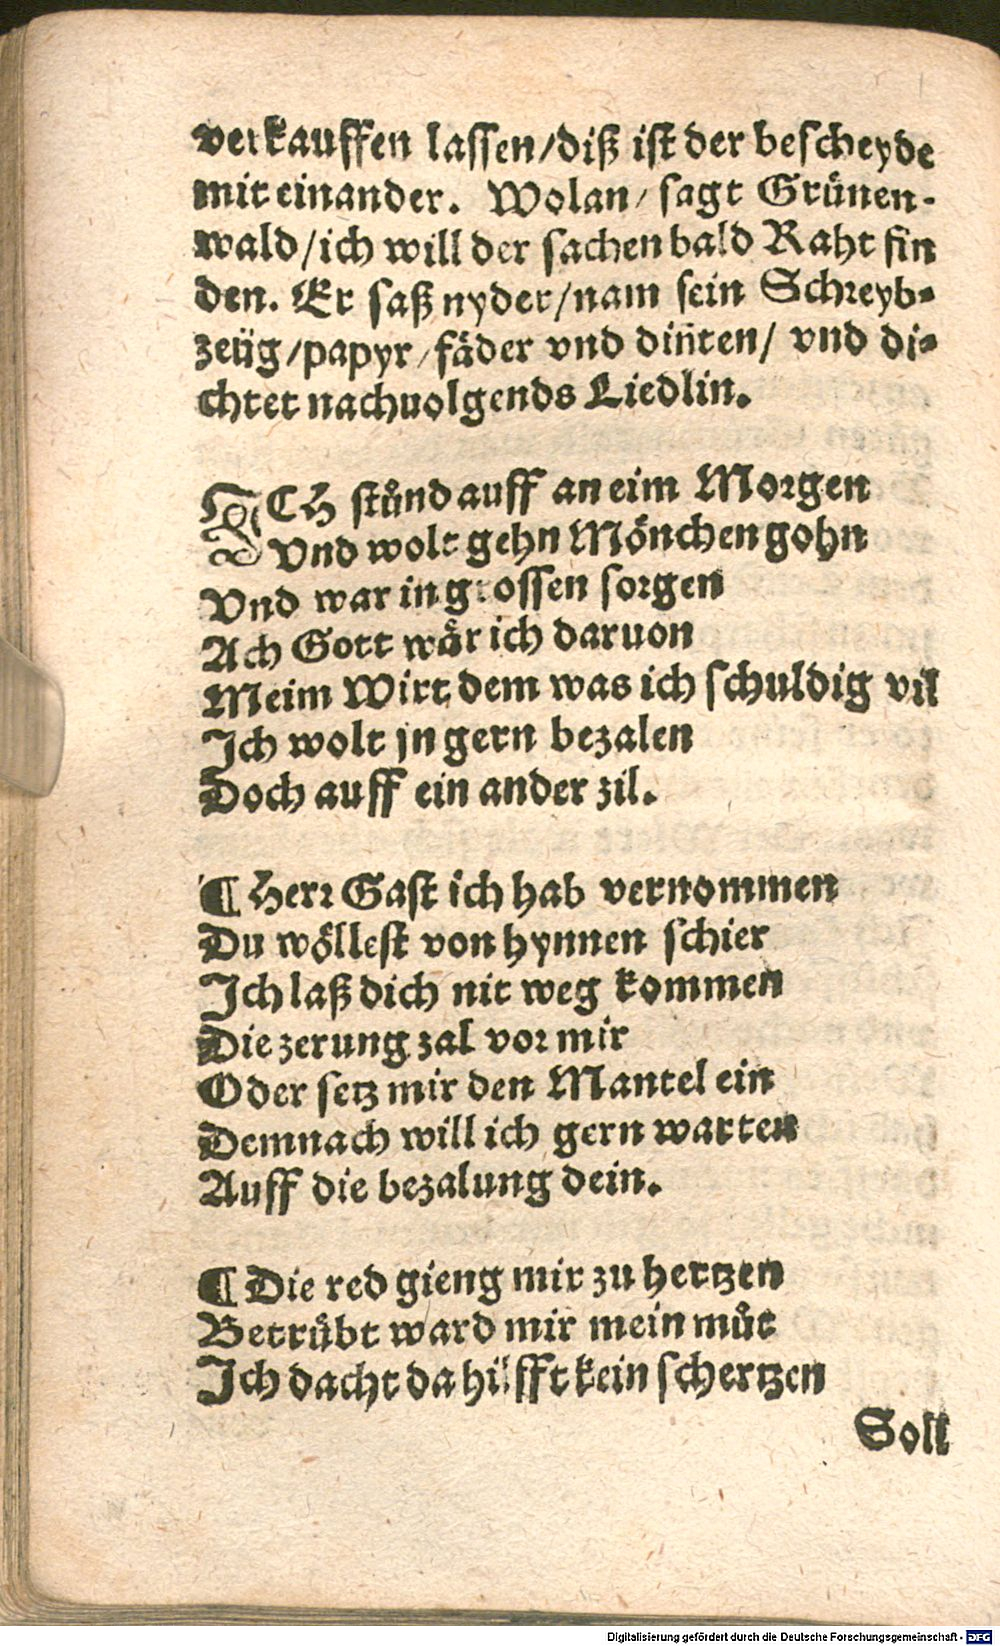 verkauffen lassen/diß ist der bescheyde
mit einander. Wolan/ sagt Grünen-
wald/ich will der sachen bald Raht fin
den. Er saß nyder/nam sein Schreyb-
zeüg/papyr/fäder vnd dinten/ vnd di-
chtet nachuolgends Liedlin.
ICH stůnd auff an eim Morgen
Vnd wolt gehn Mönchen gohn
Vnd war in grossen sorgen
Ach Gott wår ich daruon
Meim Wirt dem was ich schuldig vil
Ich wolt jn gern bezalen
Doch auff ein ander zil.
¶ Herr Gast ich hab vernommen
Du wöllest von hynnen schier
Ich laß dich nit weg kommen
Die zerung zal vor mir
Oder setz mir den Mantel ein
Demnach will ich gern warten
Auff die bezalung dein.
¶ Die red gieng mir zu hertzen
Betrübt ward mir mein můt
Ich dacht da hilfft kein schertzen
Soll
Digitalisierung gefördert durch die Deutsche Forschungsgemeinschaft - DFG